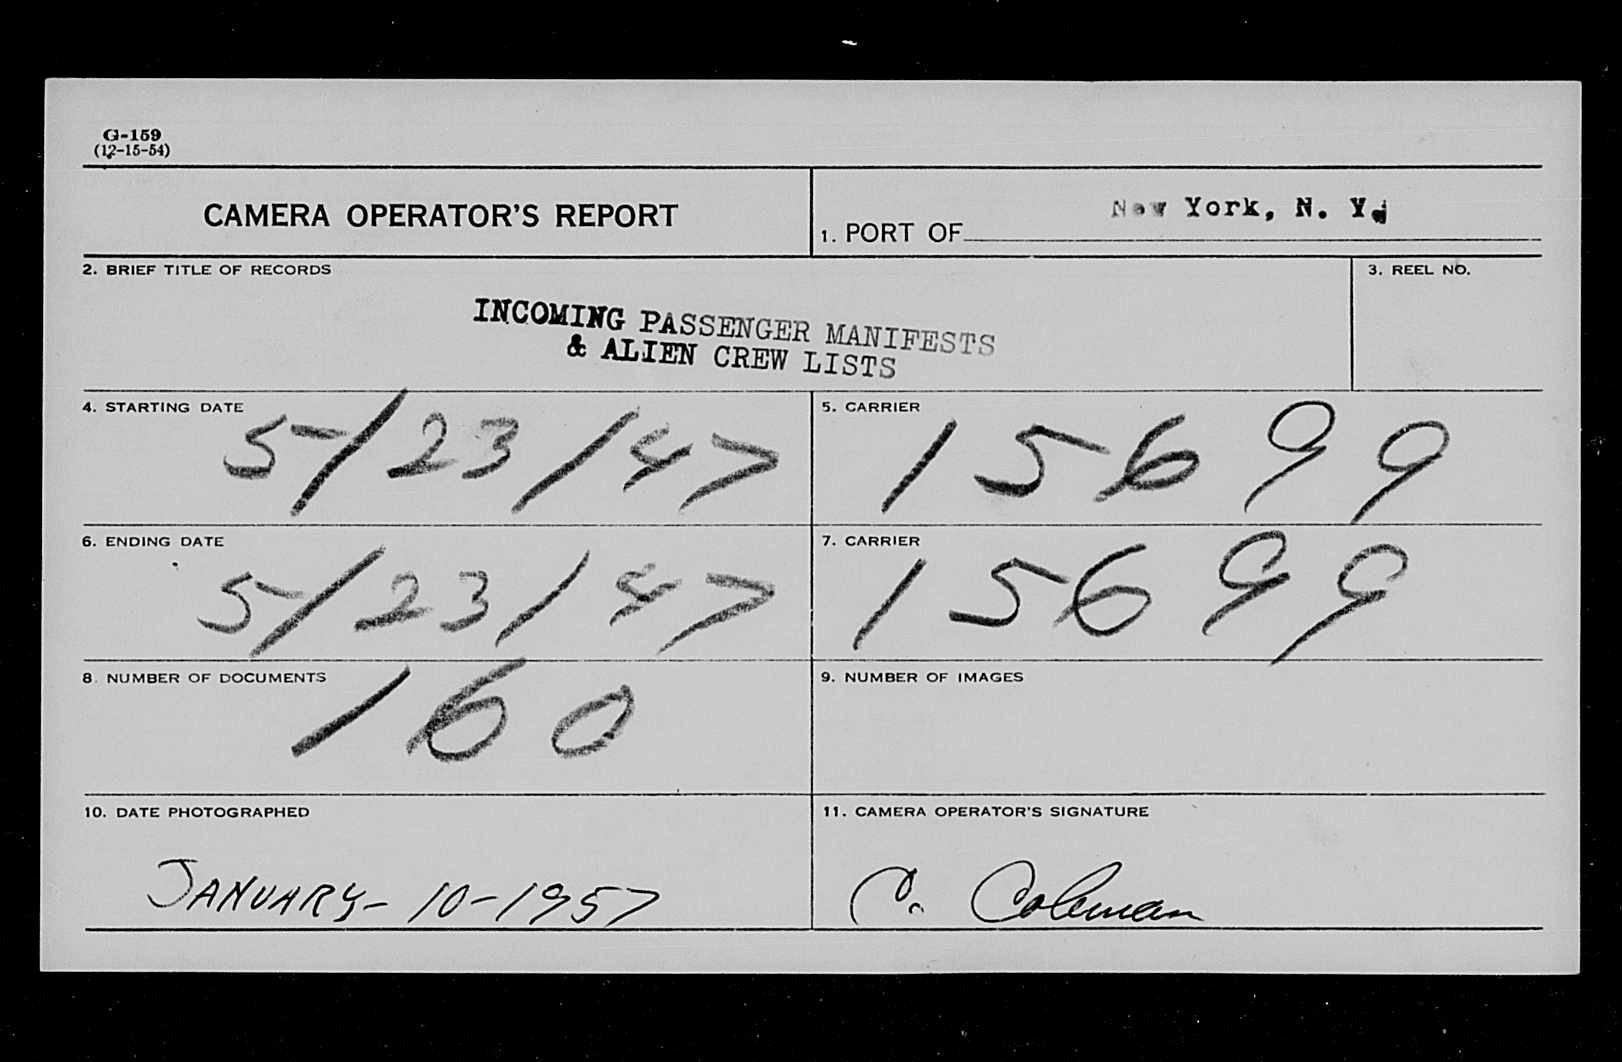 G-159
(12-15-54)
CAMERA OPERATOR'S REPORT
1. PORT OF New York, N. Y.
2. BRIEF TITLE OF RECORDS
INCOMING PASSENGER MANIFESTS
& ALIEN CREW LISTS
3. REEL NO.
4. STARTING DATE
5/23/47
5. CARRIER
15699
6. ENDING DATE
5/23/47
7. CARRIER
15699
8. NUMBER OF DOCUMENTS
160
9. NUMBER OF IMAGES
10. DATE PHOTOGRAPHED
JANUARY-10-1957
11. CAMERA OPERATOR'S SIGNATURE
C. Coleman